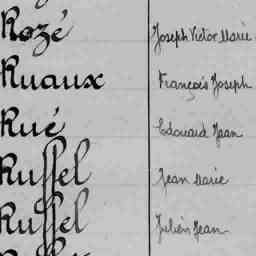 Rozé Joseph Victor Marie
Ruaux François Joseph
Rué Edouard Jean
Ruffel Jean Marie
Ruffel Julien Jean